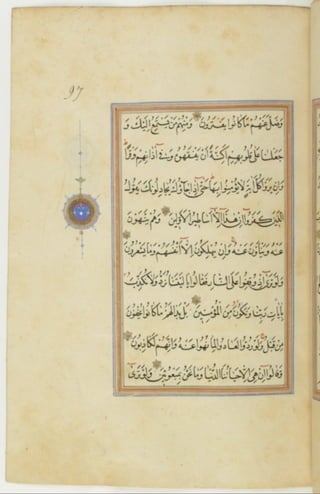 97
وَضَلَّ عَنْهُمْ مَا كَانُوا يَفْتَرُونَ وَمِنْهُمْ مَنْ يَسْتَمِعُ إِلَيْكَ وَ
جَعَلْنَا عَلَى قُلُوبِهِمْ أَكِنَّةً أَنْ يَفْقَهُوهُ وَفِي آذَانِهِمْ وَقْرًا
وَإِنْ يَرَوْا كُلَّ آيَةٍ لَا يُؤْمِنُوا بِهَا حَتَّى إِذَا جَاءُوكَ يُجَادِلُونَكَ يَقُولُ
الَّذِينَ كَفَرُوا إِنْ هَذَا إِلَّا أَسَاطِيرُ الْأَوَّلِينَ وَهُمْ يَنْهَوْنَ
عَنْهُ وَيَنْأَوْنَ عَنْهُ وَإِنْ يُهْلِكُونَ إِلَّا أَنْفُسَهُمْ وَمَا يَشْعُرُونَ
وَلَوْ تَرَى إِذْ وُقِفُوا عَلَى النَّارِ فَقَالُوا يَا لَيْتَنَا نُرَدُّ وَلَا نُكَذِّبَ
بِآيَاتِ رَبِّنَا وَنَكُونَ مِنَ الْمُؤْمِنِينَ بَلْ بَدَا لَهُمْ مَا كَانُوا يُخْفُونَ
مِنْ قَبْلُ وَلَوْ رُدُّوا لَعَادُوا لِمَا نُهُوا عَنْهُ وَإِنَّهُمْ لَكَاذِبُونَ
وَقَالُوا إِنْ هِيَ إِلَّا حَيَاتُنَا الدُّنْيَا وَمَا نَحْنُ بِمَبْعُوثِينَ وَلَوْ تَرَى